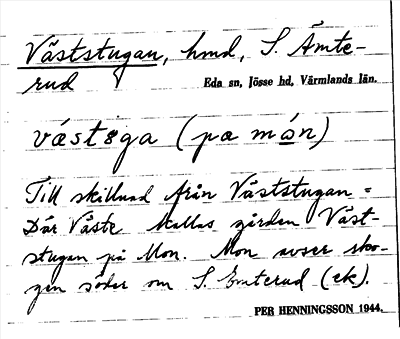 Väststugan, hmd, S. Ämte-
rud
Eda sn, Jösse hd, Värmlands län.
væstsga (pæ món)
Till skillnad från Väststugan =
Där Väste kallas gården Väst-
stugan på Mon. Mon avser sko-
gen söder om S. Emterud (ek).
PER HENNINGSSON 1944.